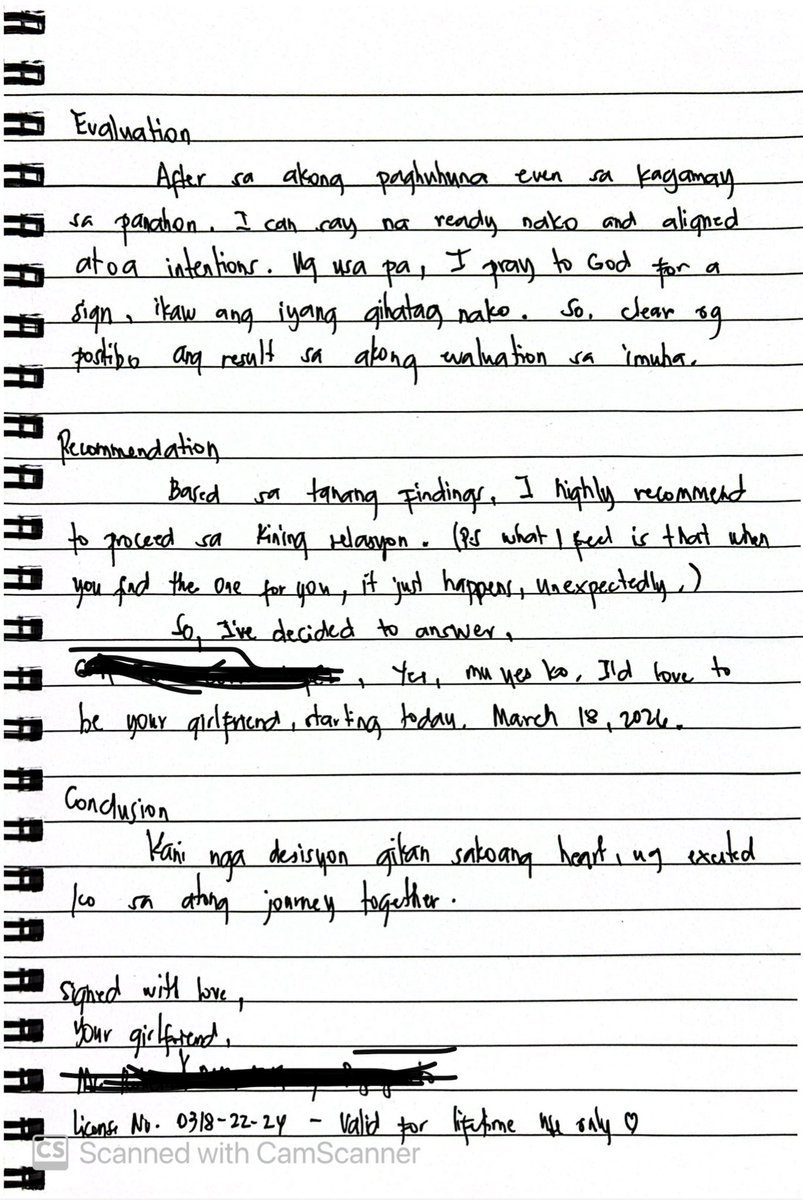 Evaluation
After sa akong paghuhuna even sa kagamay
sa panahon. I can say na ready nako and aligned
atoa intentions. Ug usa pa, I pray to God for a
sign, ikaw ang iyang gihatag nako. So, clear og
postibo ang result sa akong evaluation sa imuha.
Recommendation
Based sa tanang Findings, I highly recommend
to proceed sa kining relasyon. (P.s what I feel is that when
you find the one for you, it just happens, unexpectedly.)
So, I've decided to answer,
, Yes, mu yes ko. I'd love to
be your girlfriend, starting today. March 18, 2026.
Conclusion
Kani nga desisyon gikan sakoang heart, ug excited
ko sa atong journey together.
Signed with love,
Your girlfriend,
License No. 0318-22-24 - Valid for lifetime use only ♡
CS Scanned with CamScanner